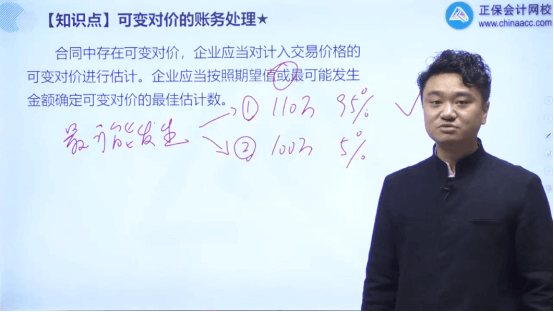 【知识点】可变对价的账务处理★
正保会计网校
www.chinaacc.com
合同中存在可变对价，企业应当对计入交易价格的
可变对价进行估计。企业应当按照期望值或最可能发生
金额确定可变对价的最佳估计数。
① 110万 95% ✓
最可能发生
② 100万 5%